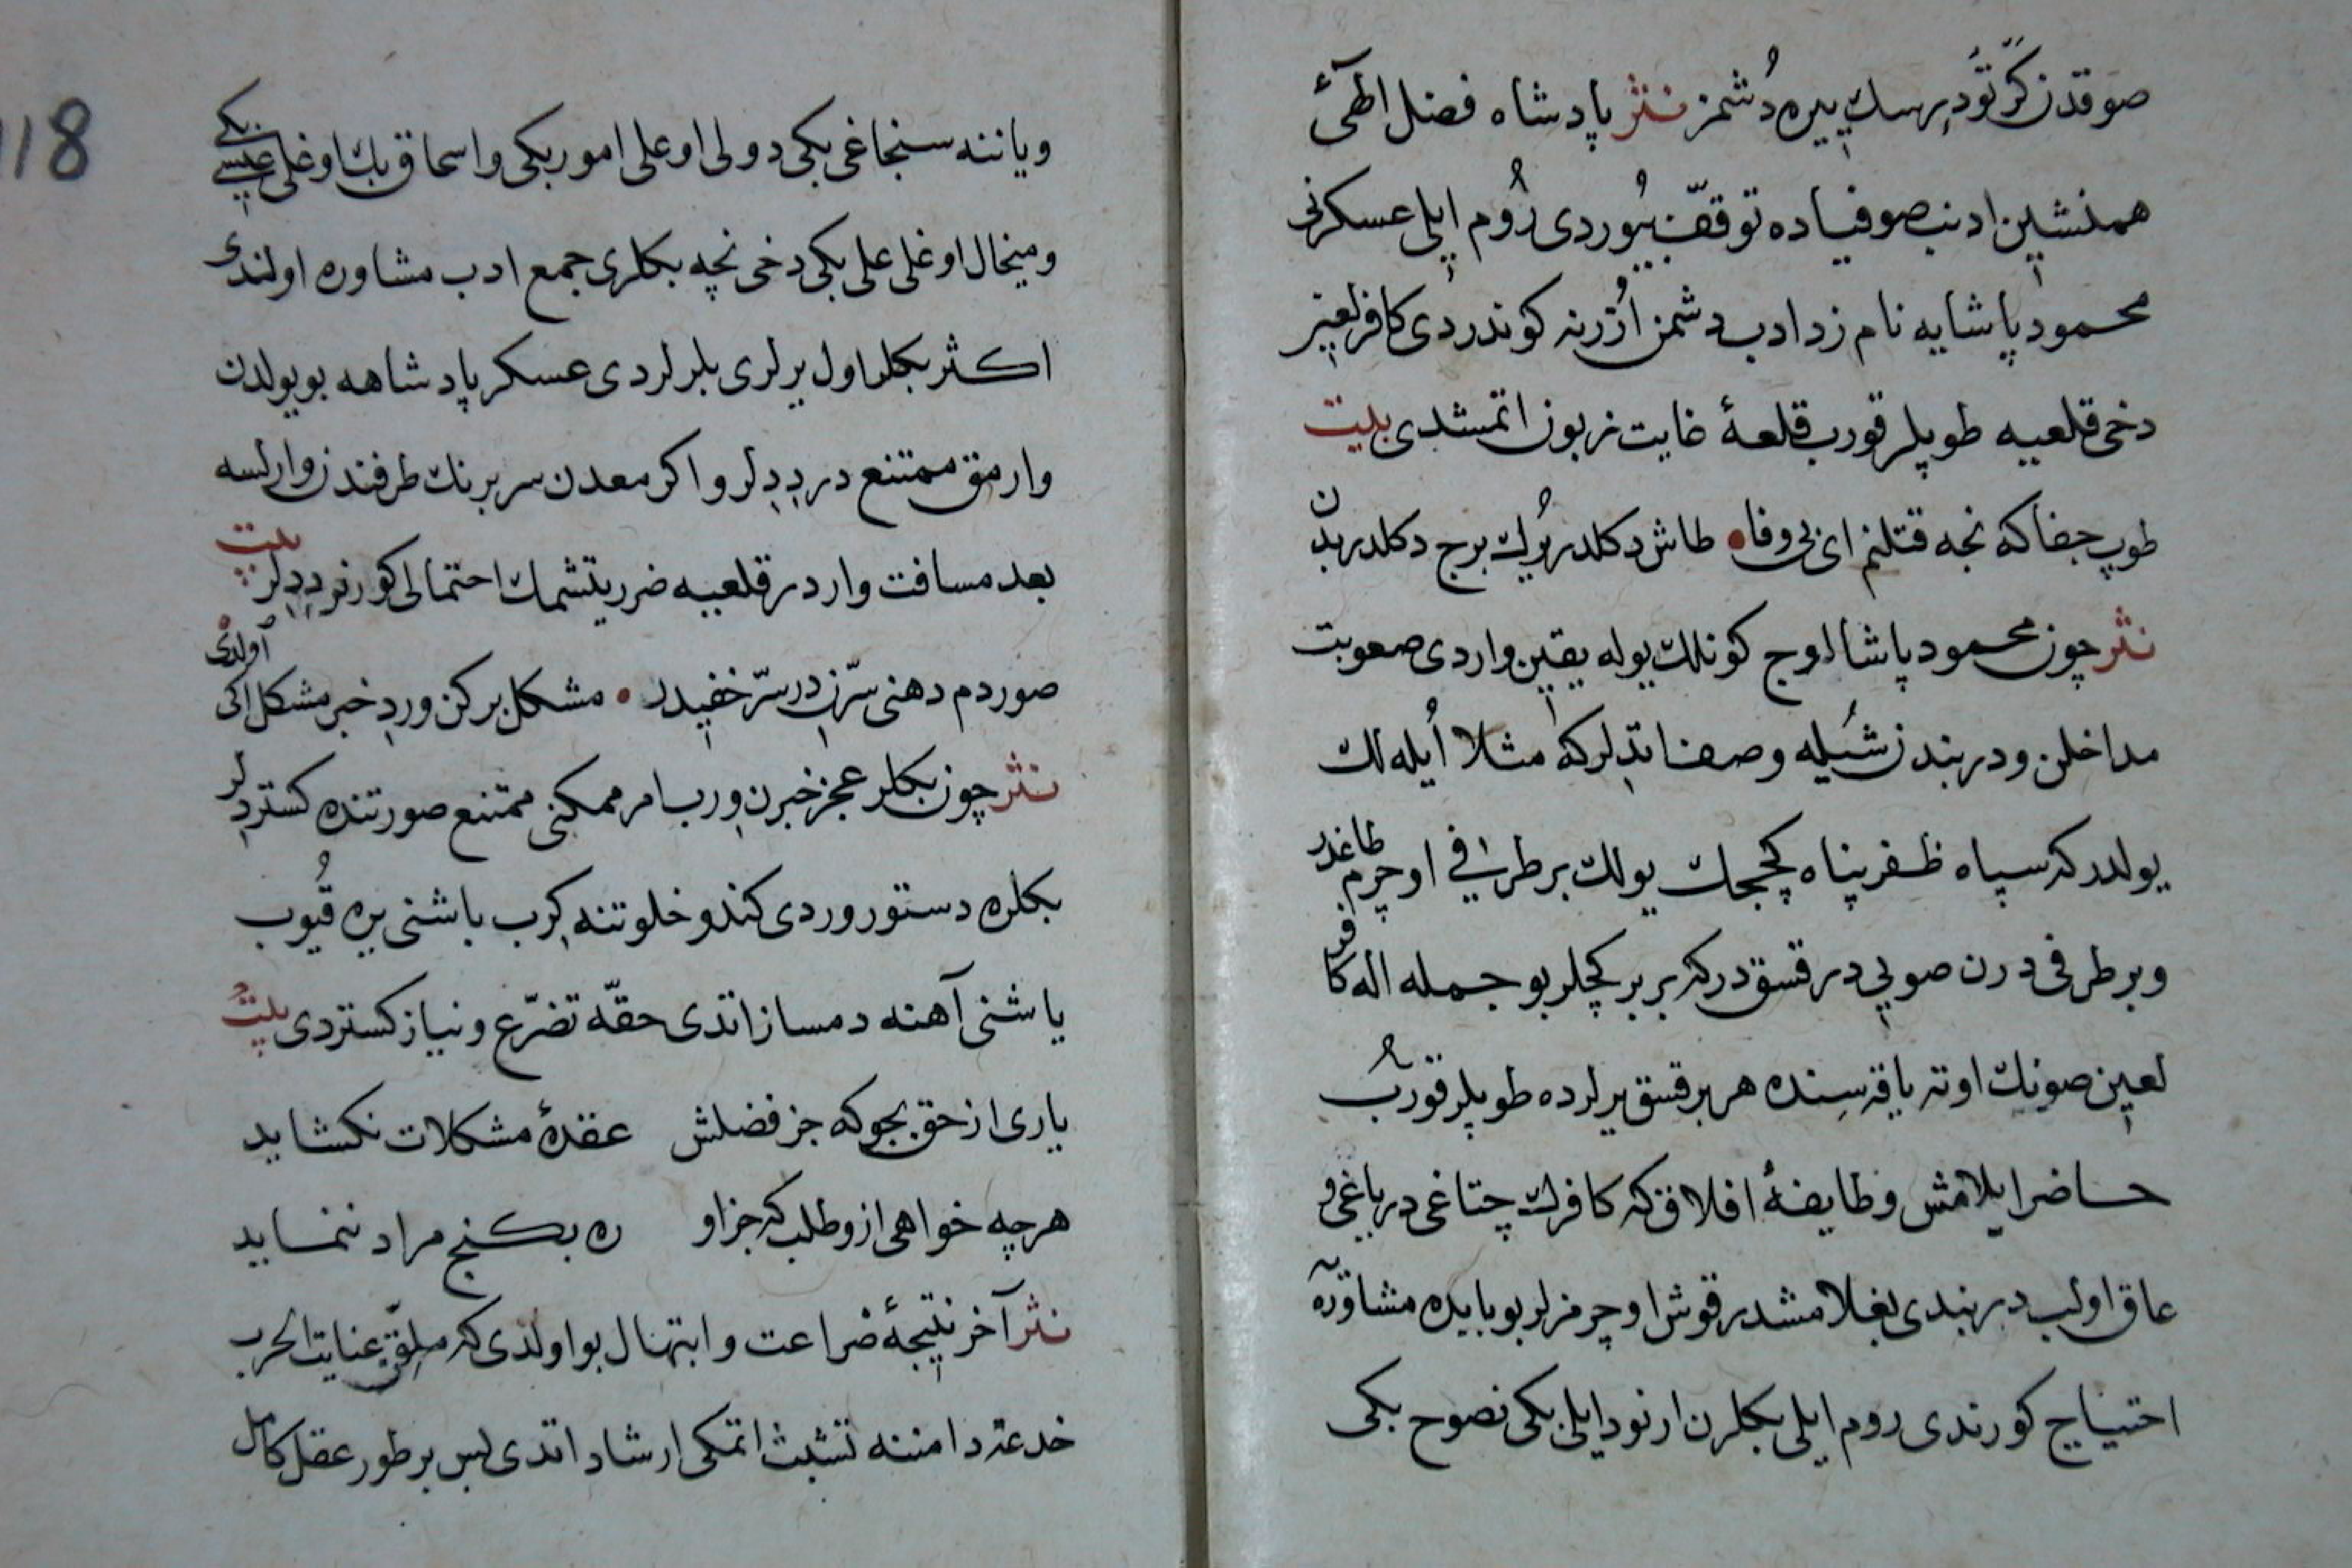 صوقدن كز تو دبرسك پيره دشمز نثر پادشاه فضل الهئ
همنشين ادنب صوفياده توقف بيوردی روم ايلی عسكرنی
محمود پاشايه نام زد ادب دشمن اوزرنه كوندردی كافر لعين
دخی قلعيه طوپلر قورب قلعۀ غايت زبون اتمشدی بيت
طوپ جفاكه نجه قتلنم ای بی وفا طاش دكلدر يورك برج دكلدر بدن
نثر چون محمود پاشا اوج كونلك يوله يقين واردی صعوبت
مداخلن ودربندن شيله وصف اتدلركه مثلا ايله لك
يولدركه سپاه ظفرپناه كچجك يولك بر طرفی اوچرم طاغدر
وبر طرفی درن صويی در قسق دركه برر برر كچلر بو جمله اله كافر
لعين صونك اوته ياقه سنده هر بر قسق يرلرده طوپلر قورب
حاضر ايلامش وطايفۀ افلاق كه كافرك چتاغی در باغی و
عاق اولب دربندی بغلامشدر قوش اوچرمزلر بو بابده مشاوره
احتياج كورندی روم ايلی بكلرن ارنود ايلی بكی نصوح بكی
118
ويانيه سنجاغی بكی دولی اوغلی امور بكی واسحاق بك اوغلی عيسی بكی
وميخال اوغلی علی بكی دخی نچه بكلری جمع ادب مشاوره اولندی
اكثر بكلر اول يرلری بلرلردی عسكر پادشاهه بو يولدن
وارمق ممتنع در ديدلر و اكر معدن سربرنك طرفندن وارلسه
بعد مسافت واردر قلعيه ضرر يتشمك احتمالی كورنر ديدلر بيت
صوردم دهنی سرن در سر خفيدر مشكل بركن وردی خبر مشكل ايكی اولدی
نثر چون بكلر عجز خبرن ورب امر ممكنی ممتنع صورتنده كستردلر
بكلره دستور وردی كندو خلوتنه كرب باشنی يره قيوب
ياشنی آهنه دمساز اتدی حقه تضرع ونياز كستردی بيت
ياری از حق بجو كه جز فضلش عقدۀ مشكلات نكشايد
هرچه خواهی ازو طلب كه جز او ره بكنج مراد ننمايد
نثر آخر نتيجۀ ضراعت وابتهال بو اولدی كه ملقن عنايت الحرب
خدعة دامننه تشبث اتمكی ارشاد اتدی پس بر طور عقل كامل